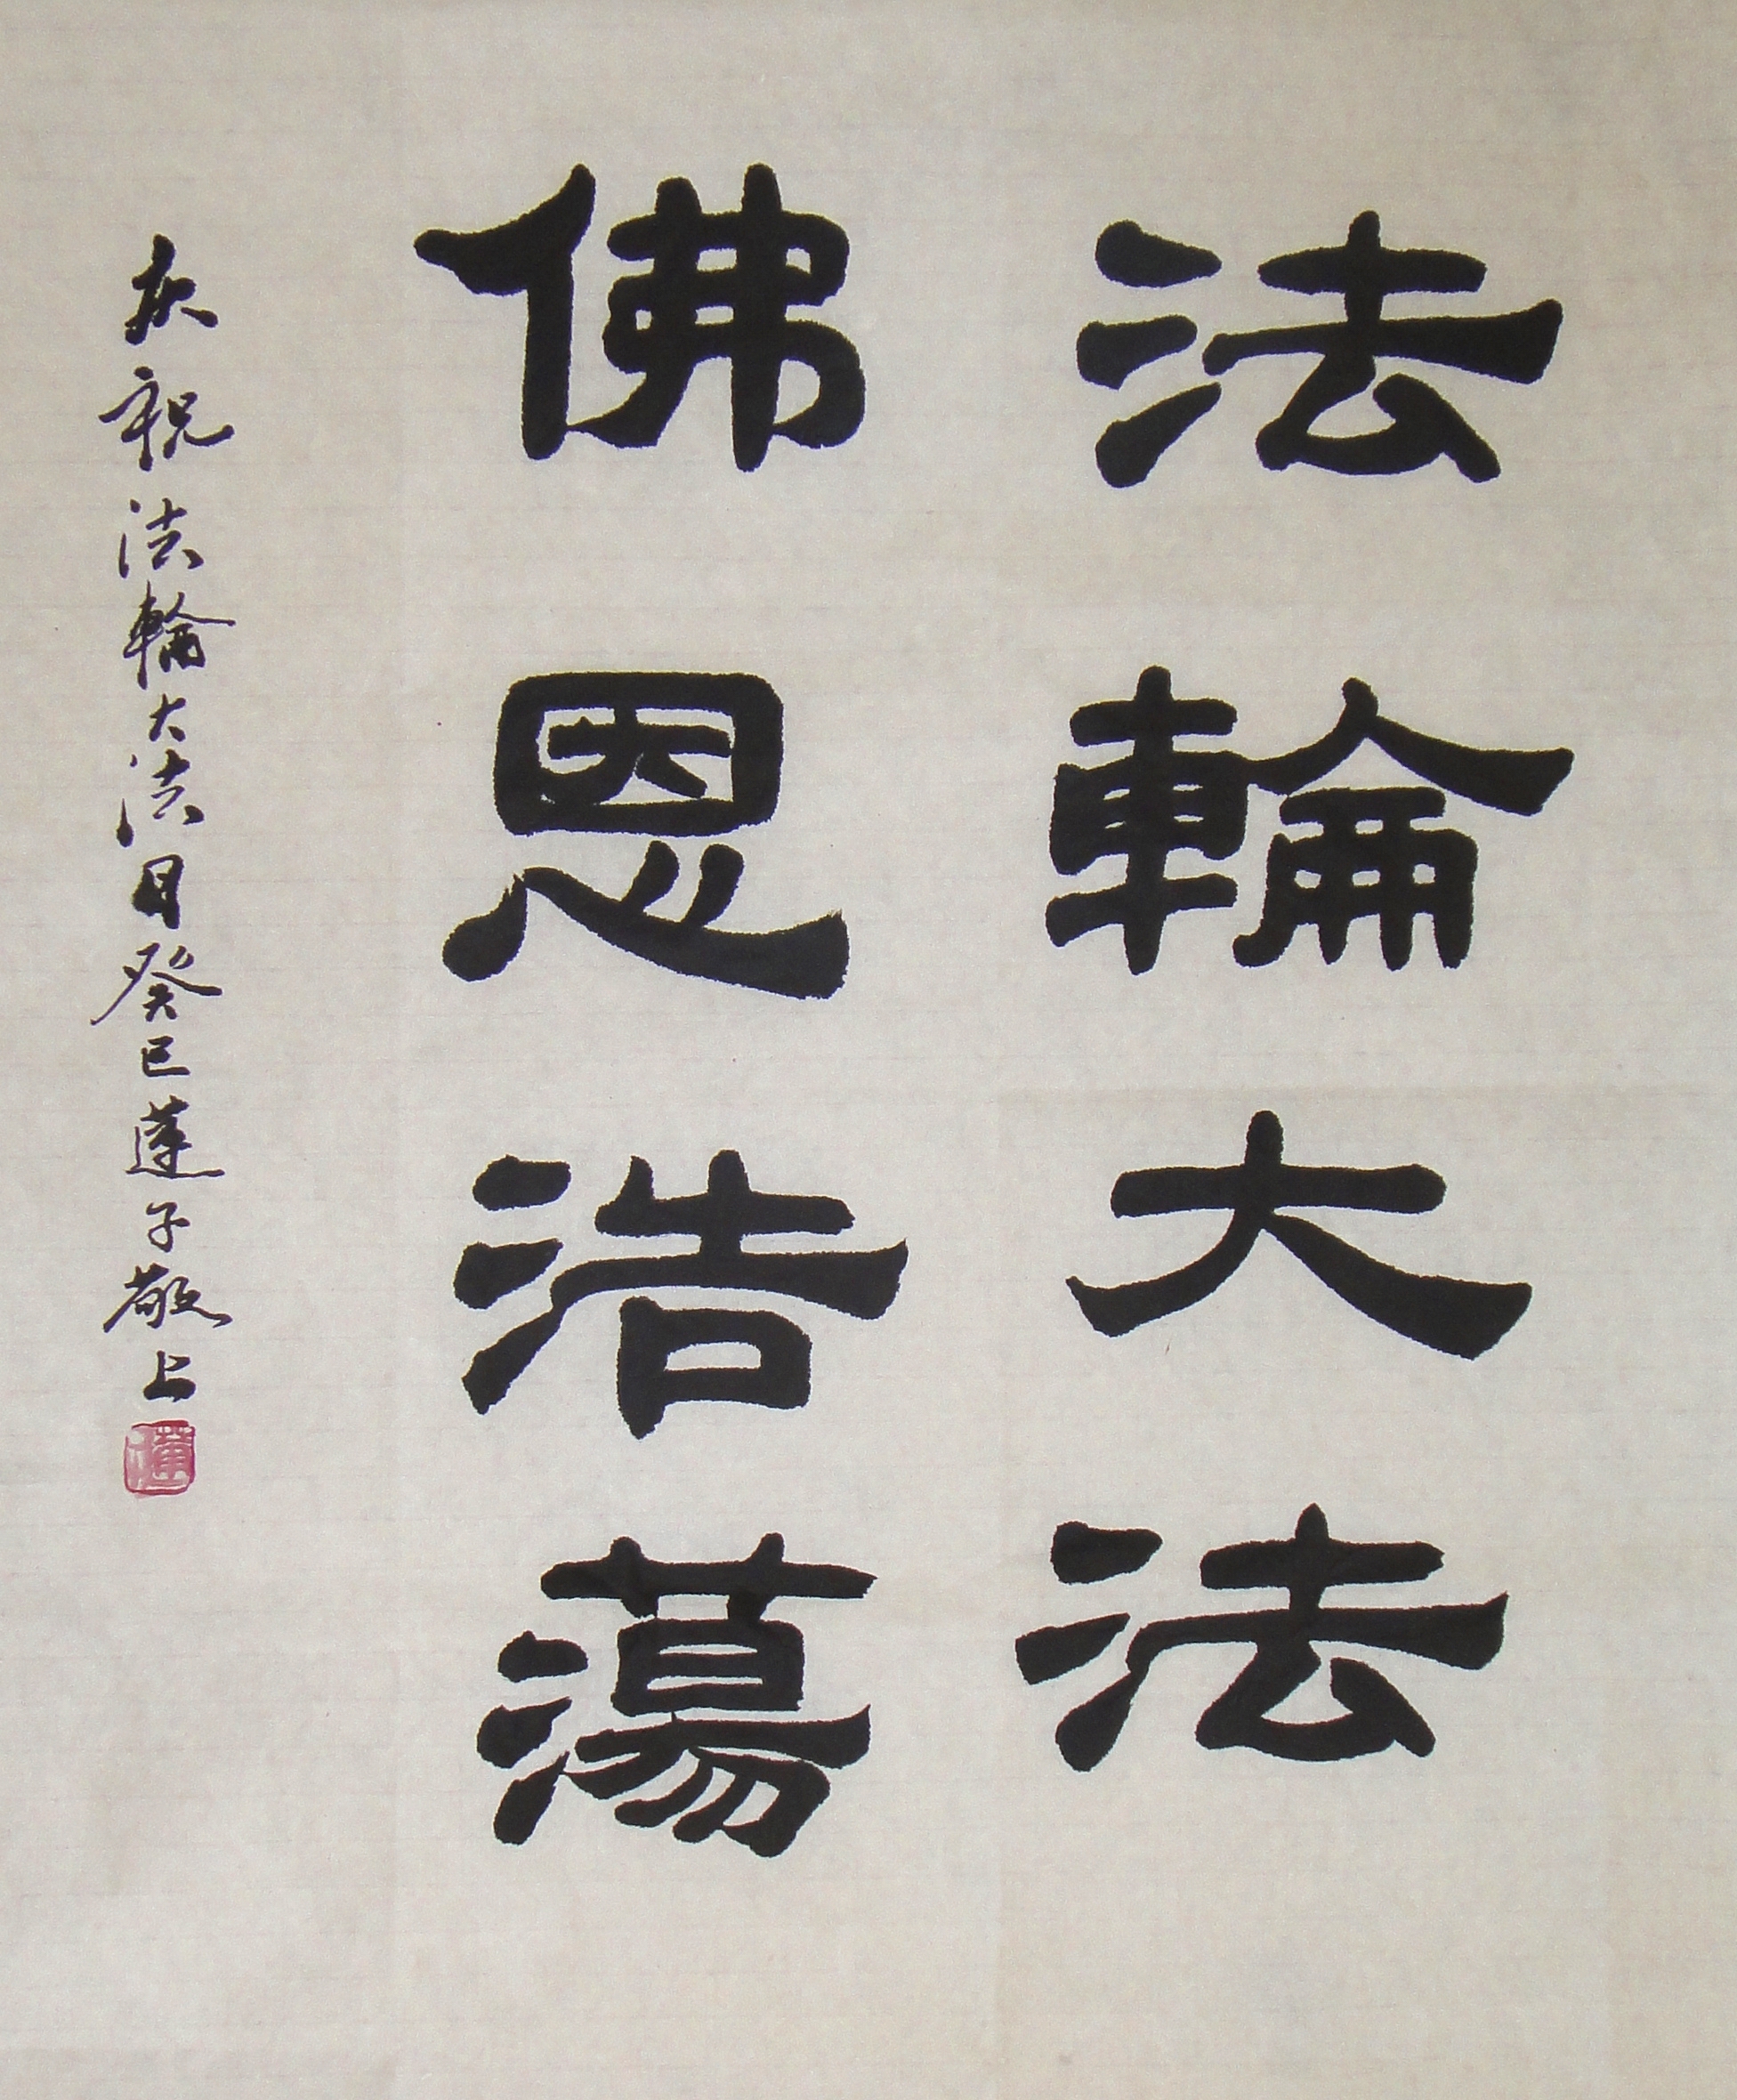 法輪大法
佛恩浩蕩
庆祝法輪大法日癸巳蓮子敬上